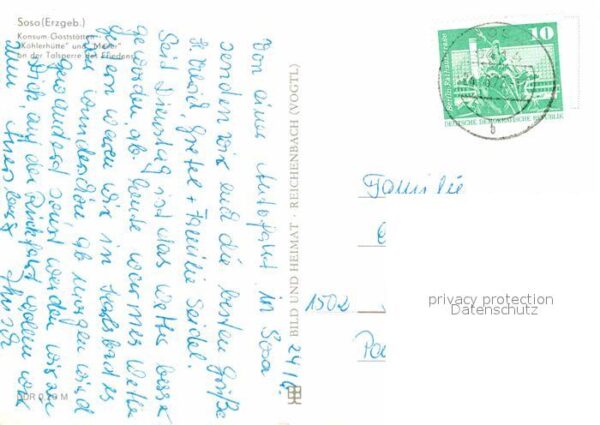 Sosa (Erzgeb.)
Konsum Gaststätten
"Köhlerhütte" und "Meiler"
an der Talsperre des Friedens
24/6.
Von einer Autofahrt in Sosa
senden wir euch die besten Grüße
Familie Seidel.
Seit Dienstag ist das Wetter besser
geworden ab heute warmes Wetter
gestern waren wir in Karlsbad es
war wunderschön ab morgen wird
gewandert sonst werden wir zu
dick, auf der Rückfahrt wollen wir
zum Auersberg
DDR 0,20 M
BILD UND HEIMAT · REICHENBACH (VOGTL)
10
DEUTSCHE DEMOKRATISCHE REPUBLIK
b
Familie
1502
privacy protection
Datenschutz